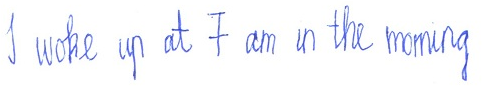 I woke up at 7 am in the morning